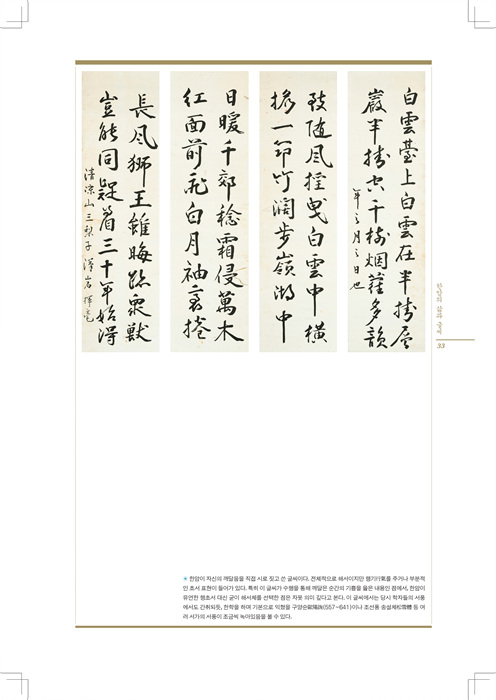 白雲臺上白雲在半搏層
巖半搏空千樹烟蘿多韻
致隨風搖曳白雲中橫
擔一筇竹闊步嶺湖中
日暖千郊稔霜侵萬木
紅面前飛白月袖裏捲
長風獅王雖晦跡衆獸
豈能同
三十年始得
年三月三日也
清凉山三梨子漢岩揮毫
한암의 삶과 글씨
33
✦ 한암이 자신의 깨달음을 직접 시로 짓고 쓴 글씨이다. 전체적으로 해서이지만 행기行氣를 주거나 부분적
인 초서 표현이 들어가 있다. 특히 이 글씨가 수행을 통해 깨달은 순간의 기쁨을 읊은 내용인 점에서, 한암이
유연한 행초서 대신 굳이 해서체를 선택한 점은 자못 의미 깊다고 본다. 이 글씨에서는 당시 학자들의 서풍
에서도 간취되듯, 한학을 하며 기본으로 익혔을 구양순歐陽詢(557~641)이나 조선풍 송설체松雪體 등 여
러 서가의 서풍이 조금씩 녹아있음을 볼 수 있다.